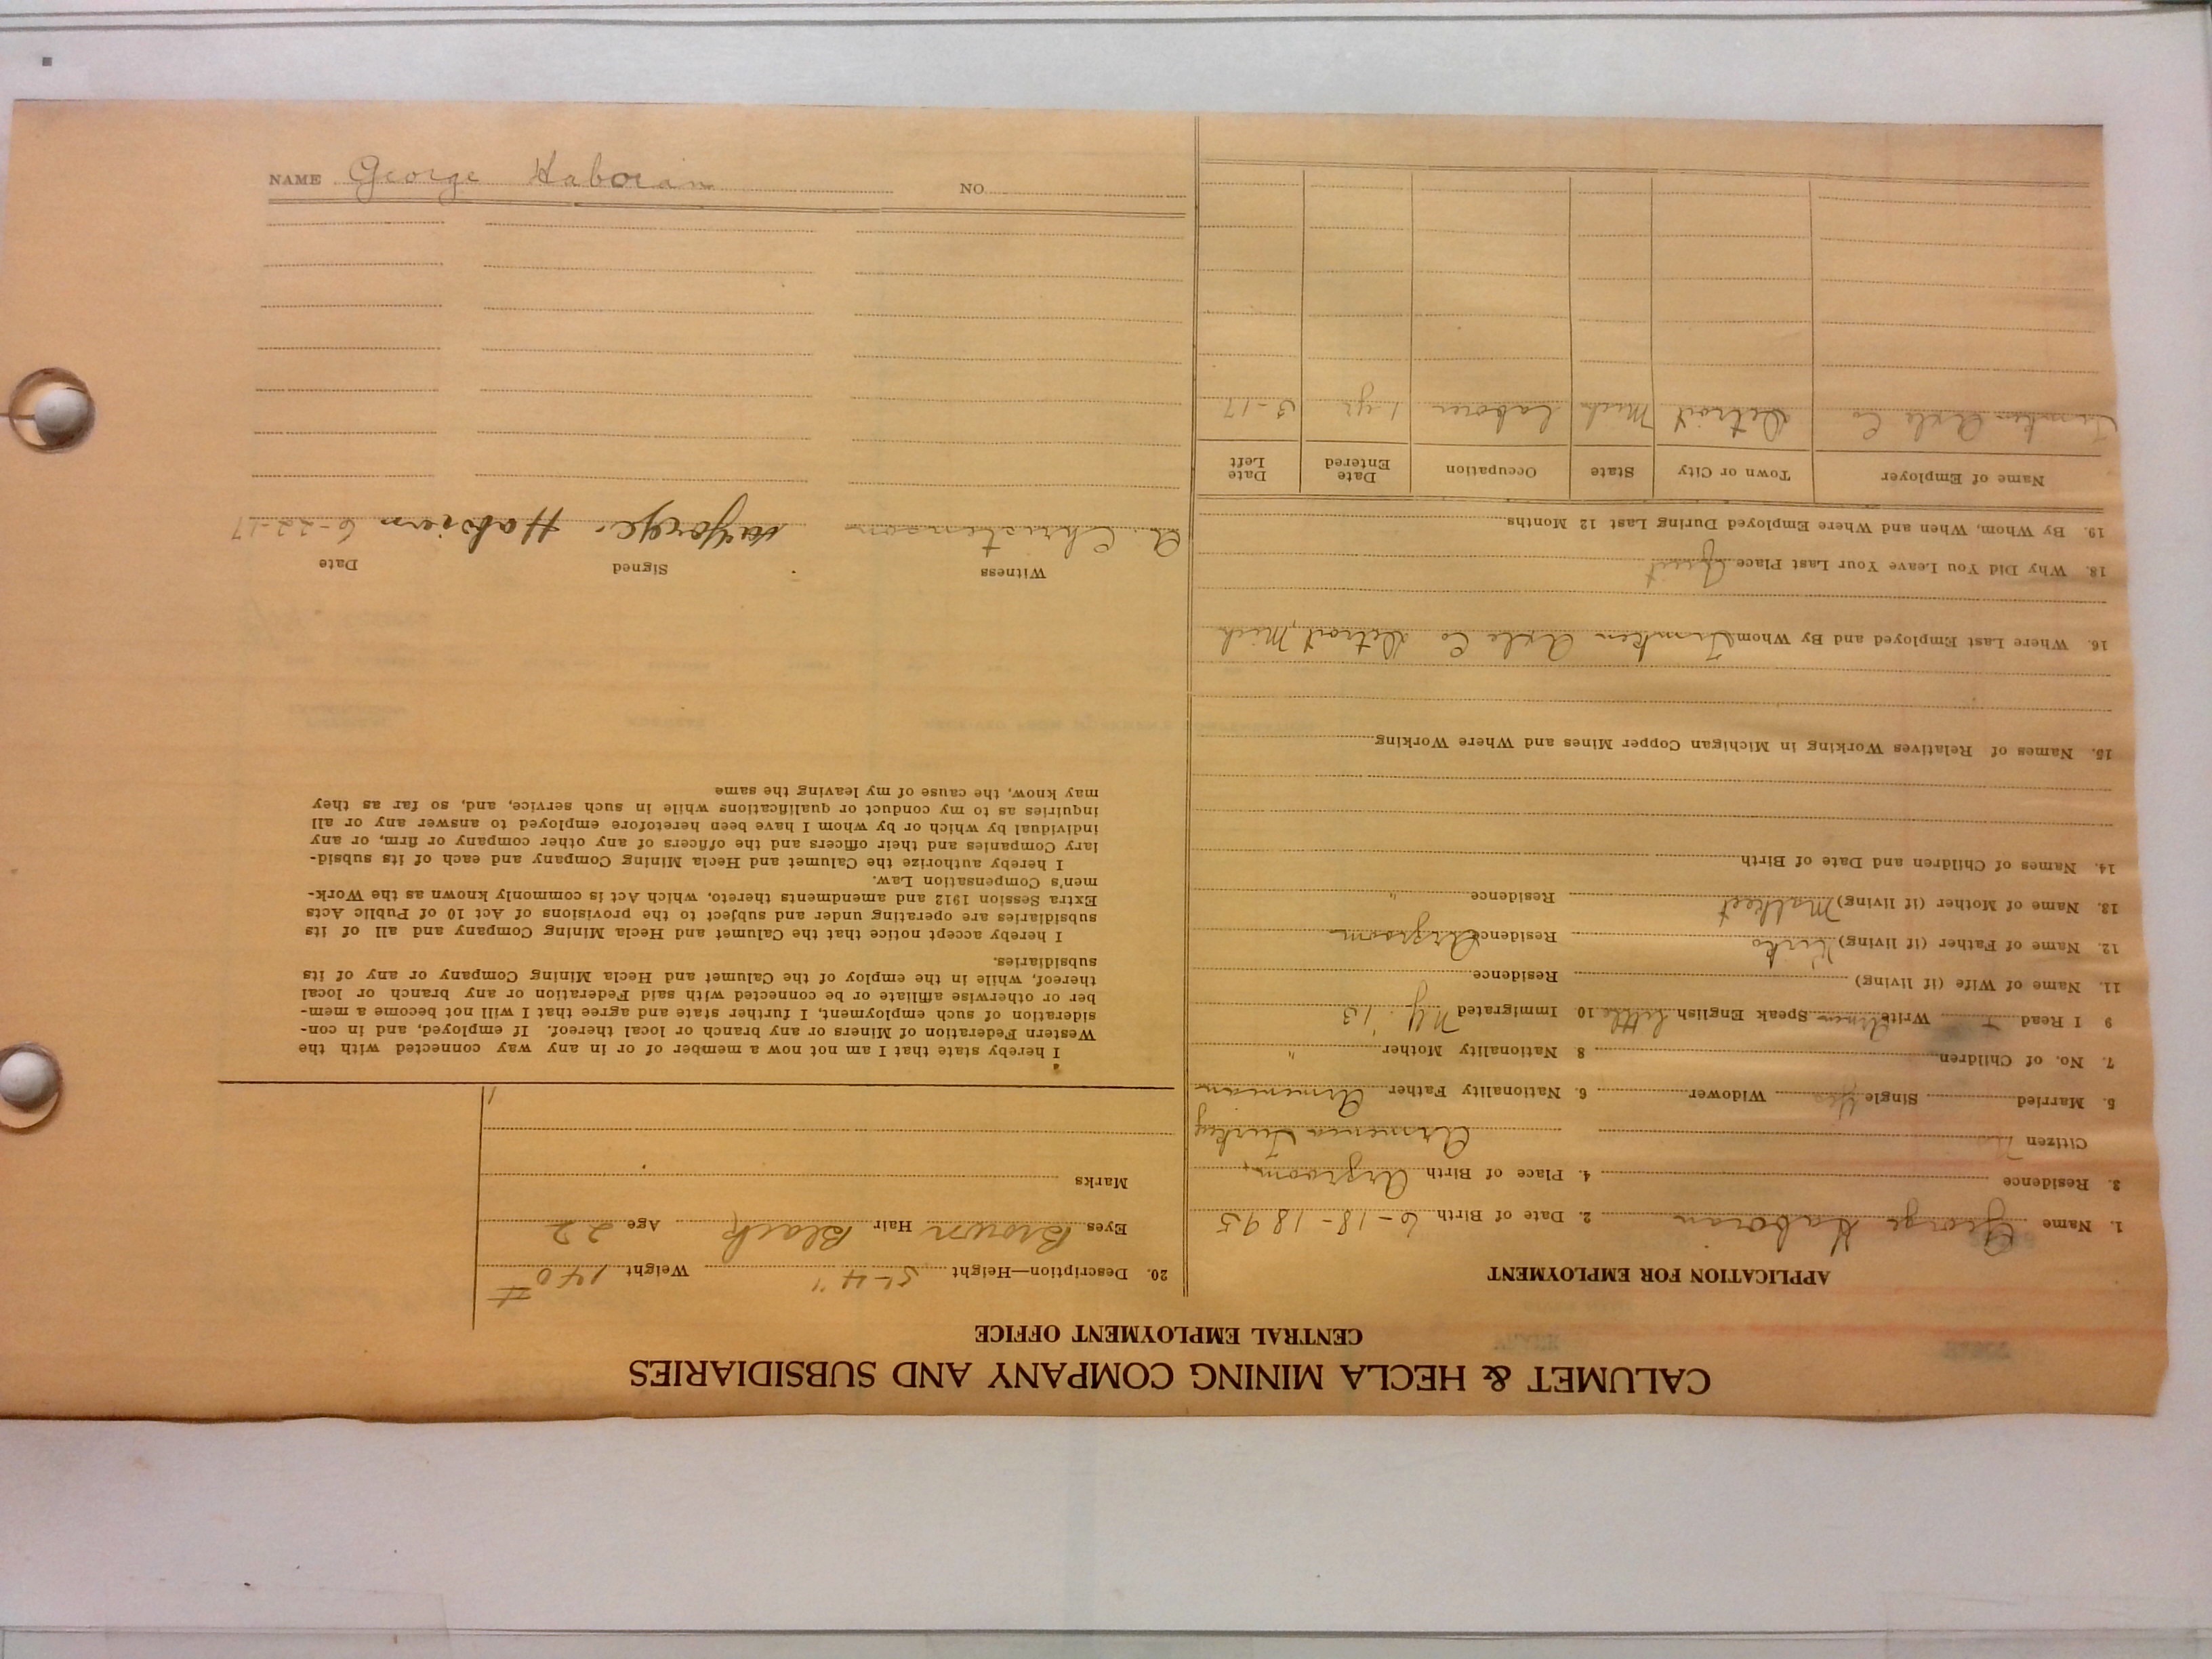 CALUMET & HECLA MINING COMPANY AND SUBSIDIARIES
CENTRAL EMPLOYMENT OFFICE
APPLICATION FOR EMPLOYMENT
1. Name George Haborian 2. Date of Birth 6-18-1895
3. Residence 4. Place of Birth Argroom,
Citizen Armenia Turkey
5. Married Single Yes Widower 6. Nationality Father Armenian
7. No. of Children 8 Nationality Mother "
9 I Read Write Armen Speak English little 10. Immigrated N.Y. '13
11. Name of Wife (if living) Residence
12. Name of Father (if living) Kirko Residence Argroom
13. Name of Mother (if living) Malkeet Residence "
14. Names of Children and Date of Birth
15. Names of Relatives Working in Michigan Copper Mines and Where Working
16. Where Last Employed and By Whom Timken Axle Co Detroit, Mich
18. Why Did You Leave Your Last Place Quit
19. By Whom, When and Where Employed During Last 12 Months
Name of Employer Town or City State Occupation Date Entered Date Left
Timken Axle Co Detroit Mich Laborer 1 yr 3-17
20. Description—Height 5'-4" Weight 140 #
Eyes Brown Hair Black Age 22
Marks
I hereby state that I am not now a member of or in any way connected with the
Western Federation of Miners or any branch or local thereof. If employed, and in con-
sideration of such employment, I further state and agree that I will not become a mem-
ber or otherwise affiliate or be connected with said Federation or any branch or local
thereof, while in the employ of the Calumet and Hecla Mining Company or any of its
subsidiaries.
I hereby accept notice that the Calumet and Hecla Mining Company and all of its
subsidiaries are operating under and subject to the provisions of Act 10 of Public Acts
Extra Session 1912 and amendments thereto, which Act is commonly known as the Work-
men's Compensation Law.
I hereby authorize the Calumet and Hecla Mining Company and each of its subsid-
iary Companies and their officers and the officers of any other company or firm, or any
individual by which or by whom I have been heretofore employed to answer any or all
inquiries as to my conduct or qualifications while in such service, and, so far as they
may know, the cause of my leaving the same
Witness Signed Date
A. Christenson Habiern 6-22-17
NAME George Haborian NO.